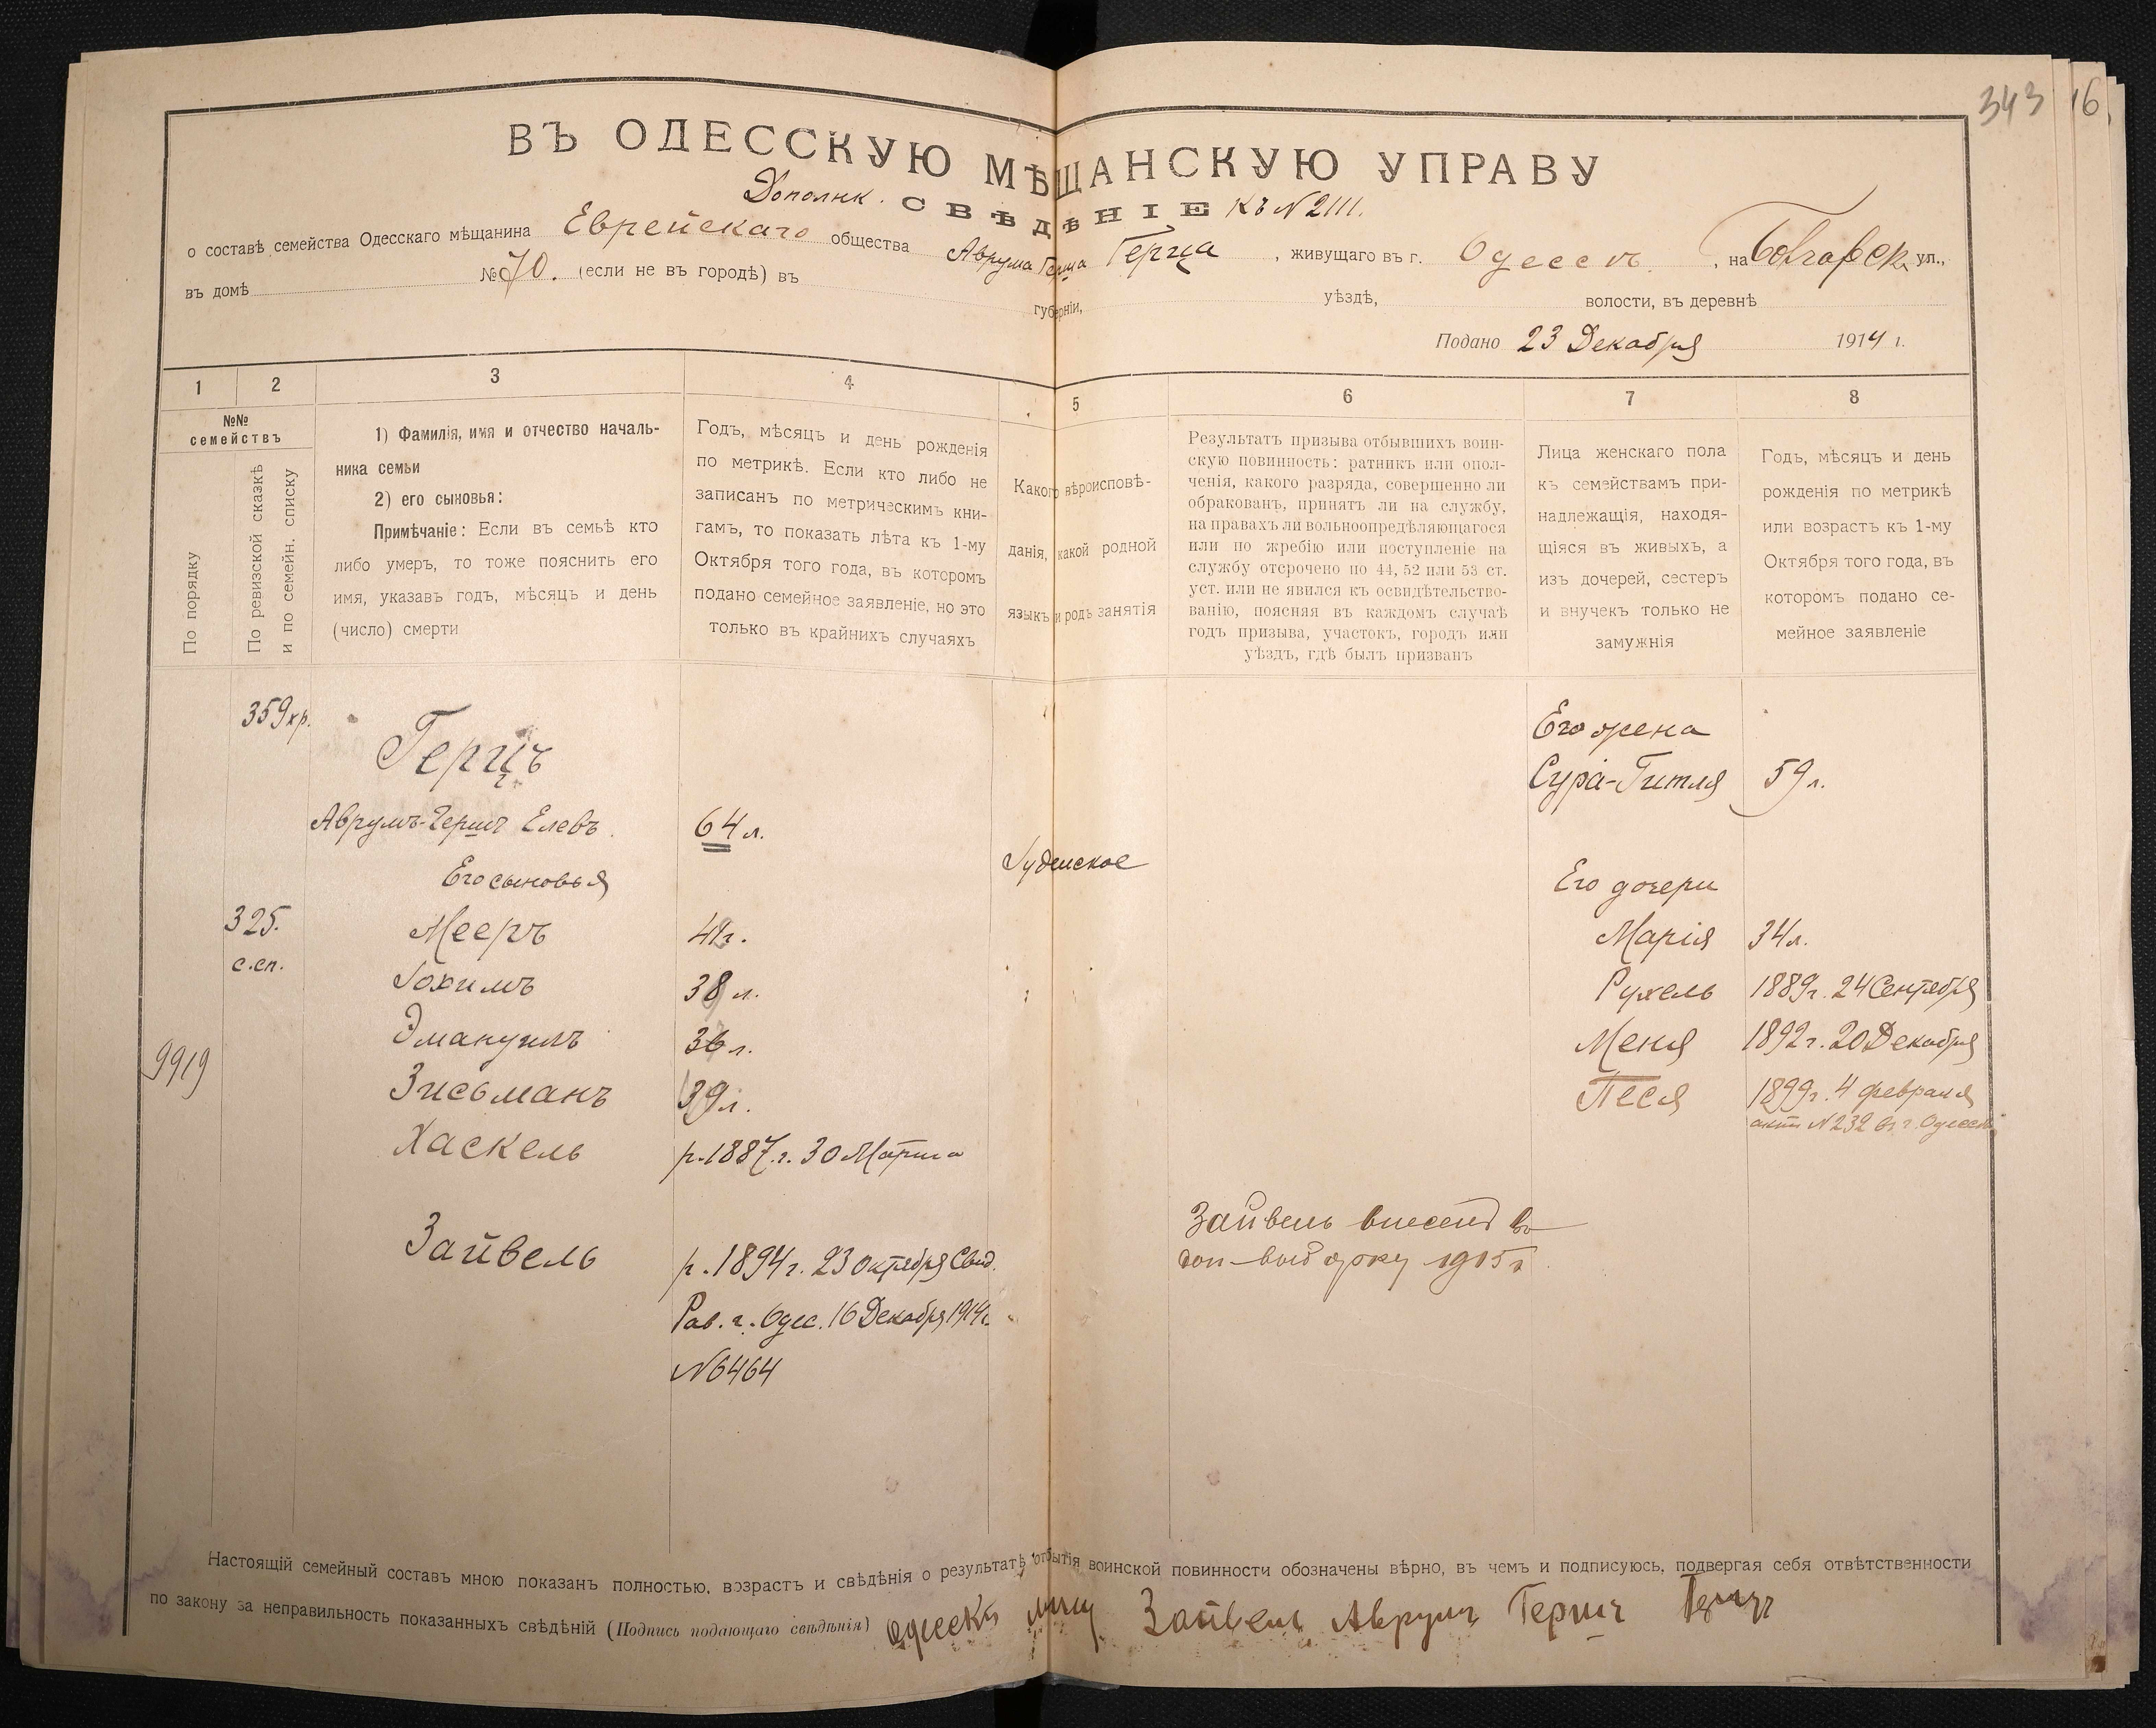 343 16
ВЪ ОДЕССКУЮ МѢЩАНСКУЮ УПРАВУ
Дополн. СВѢДѢНІЕ къ N 2111.
о составѣ семейства Одесскаго мѣщанина Еврейскаго общества Аврума Герша Герца, живущаго въ г. Одессѣ, на ул.,
въ домѣ № 70. (если не въ городѣ) въ губерніи, уѣздѣ, волости, въ деревнѣ
Подано 23 Декабря 1914 г.
1 2 3 4 5 6 7 8
№№ семействъ
По порядку
По ревизской сказкѣ
и по семейн. списку
1) Фамилія, имя и отчество началь-
ника семьи
2) его сыновья:
Примѣчаніе: Если въ семьѣ кто
либо умеръ, то тоже пояснить его
имя, указавъ годъ, мѣсяцъ и день
(число) смерти
Годъ, мѣсяцъ и день рожденія
по метрикѣ. Если кто либо не
записанъ по метрическимъ кни-
гамъ, то показать лѣта къ 1-му
Октября того года, въ которомъ
подано семейное заявленіе, но это
только въ крайнихъ случаяхъ
Какого вѣроисповѣ-
данія, какой родной
языкъ и родъ занятія
Результатъ призыва отбывшихъ воин-
скую повинность: ратникъ или опол-
ченія, какого разряда, совершенно ли
обракованъ, принятъ ли на службу,
на правахъ ли вольноопредѣляющагося
или по жребію или поступленіе на
службу отсрочено по 44, 52 или 53 ст.
уст. или не явился къ освидѣтельство-
ванію, поясняя въ каждомъ случаѣ
годъ призыва, участокъ, городъ или
уѣздъ, гдѣ былъ призванъ
Лица женскаго пола
къ семействамъ при-
надлежащія, находя-
щіяся въ живыхъ, а
изъ дочерей, сестеръ
и внучекъ только не
замужнія
Годъ, мѣсяцъ и день
рожденія по метрикѣ
или возрастъ къ 1-му
Октября того года, въ
которомъ подано се-
мейное заявленіе
359 хр.
Герцъ
Его жена
Сура-Гитля 59 л.
Аврумъ-Гершъ Елевъ. 64 л.
Іудейское
Его сыновья
Его дочери
325. Мееръ
Марія 34 л.
с.сп.
Іохимъ 38 л.
Рухель 1889 г. 24 Сентября
Эмануилъ 36 л.
Меня 1892 г. 20 Декабря
9919
Зисьманъ 39 л.
Песя 1899 г. 4 февраля
актъ N 232 въ г. Одессѣ
Хаскель р. 1887 г. 30 Марта
Зайвель р. 1894 г. 23 октября Свид.
Рав. г. Одес. 16 Декабря 1914 г.
N 6464
Зайвель внесенъ въ
1915 г
Настоящій семейный составъ мною показанъ полностью, возрастъ и свѣдѣнія о результатѣ отбытія воинской повинности обозначены вѣрно, въ чемъ и подписуюсь, подвергая себя отвѣтственности
по закону за неправильность показанныхъ свѣдѣній (Подпись подающаго свѣдѣнія) Одесскій мѣщ Зайвель Аврумъ Гершъ Герцъ